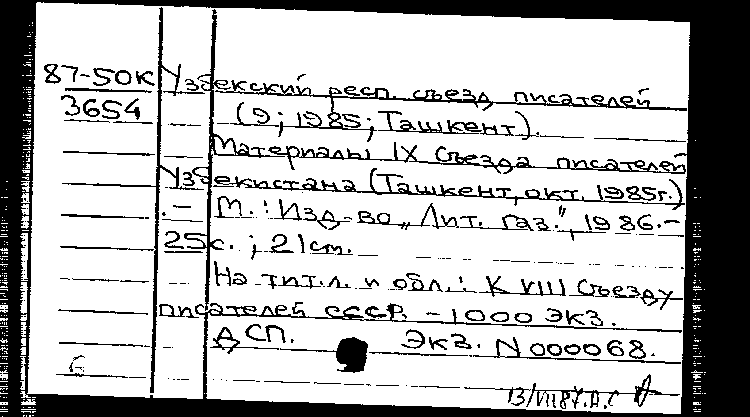 87-50К Узбекский респ. съезд писателей
3654 (9; 1985; Ташкент).
Материалы IX съезда писателей
Узбекистана (Ташкент, окт. 1985г.)
.- М.: Изд-во „Лит. газ.", 1986.-
25с.; 21см.
На тит.л. и обл.: К VIII съезду
писателей СССР. - 1000 экз.
ДСП. Экз. N 000068.
б